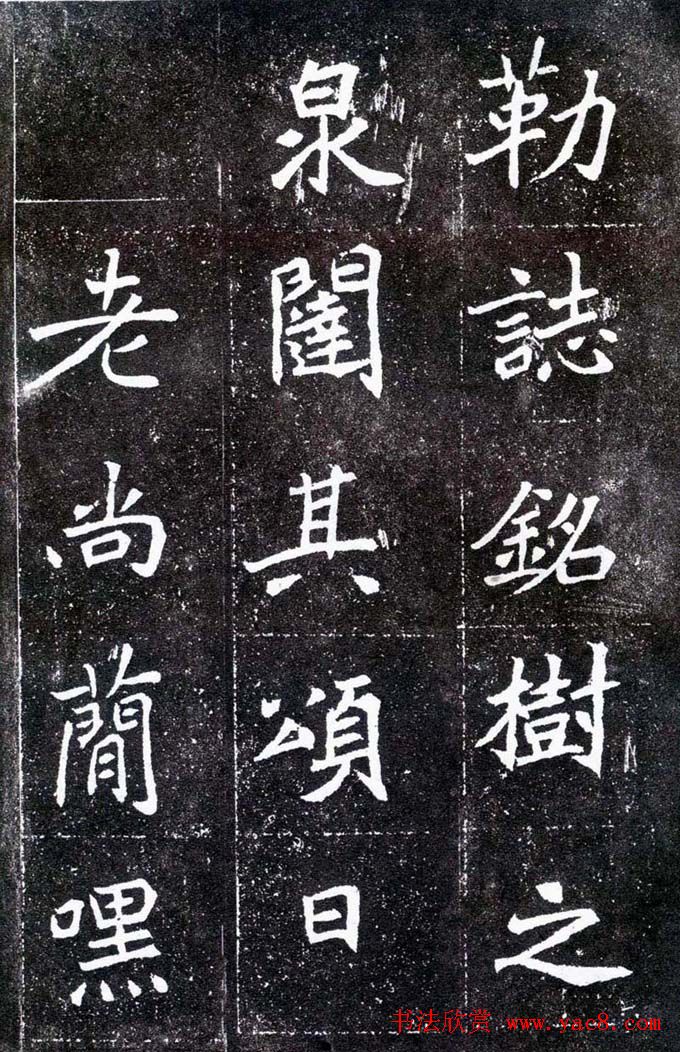 勒誌銘樹之
泉闥其頌曰
老尚蕑嘿
书法欣赏 www.yac8.com